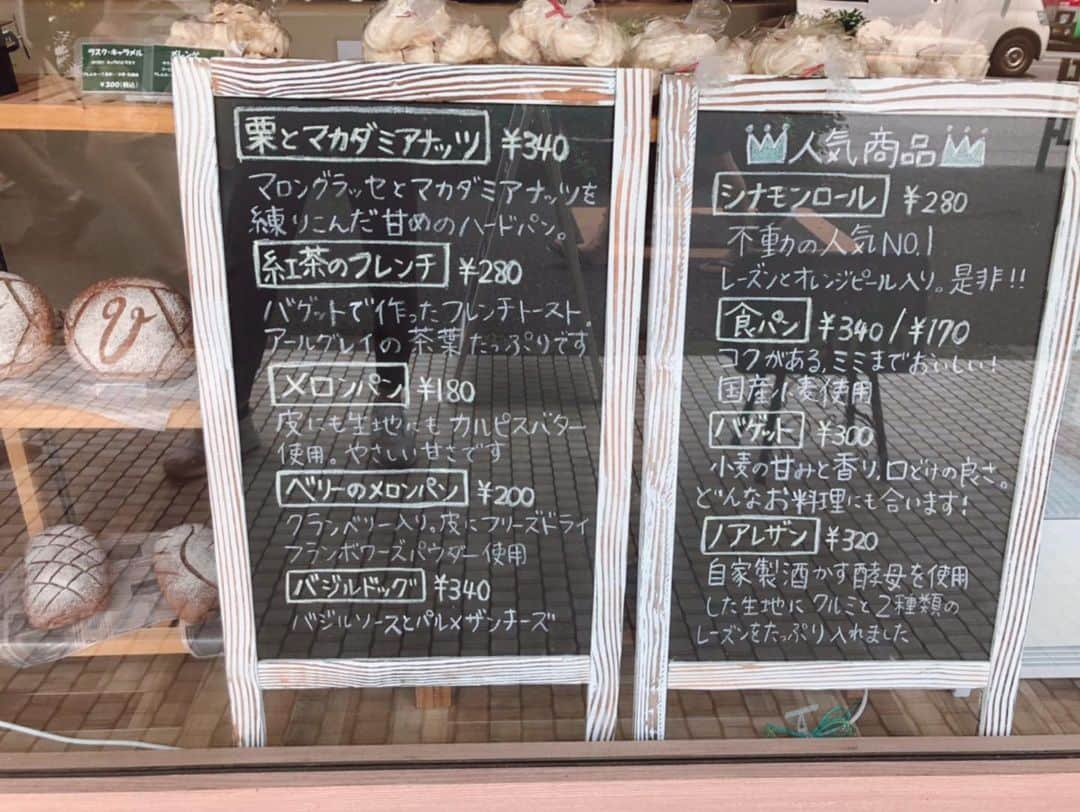 ラスク・キャラメル
¥200(税込)
栗とマカダミアナッツ ¥340
マロングラッセとマカダミアナッツを
練りこんだ甘めのハードパン。
紅茶のフレンチ ¥280
バゲットで作ったフレンチトースト。
アールグレイの茶葉たっぷりです
メロンパン ¥180
皮にも生地にもカルピスバター
使用。やさしい甘さです
ベリーのメロンパン ¥200
クランベリー入り。皮にフリーズドライ
フランボワーズパウダー使用
バジルドッグ ¥340
バジルソースとパルメザンチーズ
人気商品
シナモンロール ¥280
不動の人気NO.1
レーズンとオレンジピール入り。是非!!
食パン ¥340/¥170
コクがある、ミミまでおいしい!
国産小麦使用
バゲット ¥300
小麦の甘みと香り、口どけの良さ。
どんなお料理にも合います!
ノアレザン ¥320
自家製酒かす酵母を使用
した生地にクルミと2種類の
レーズンをたっぷり入れました